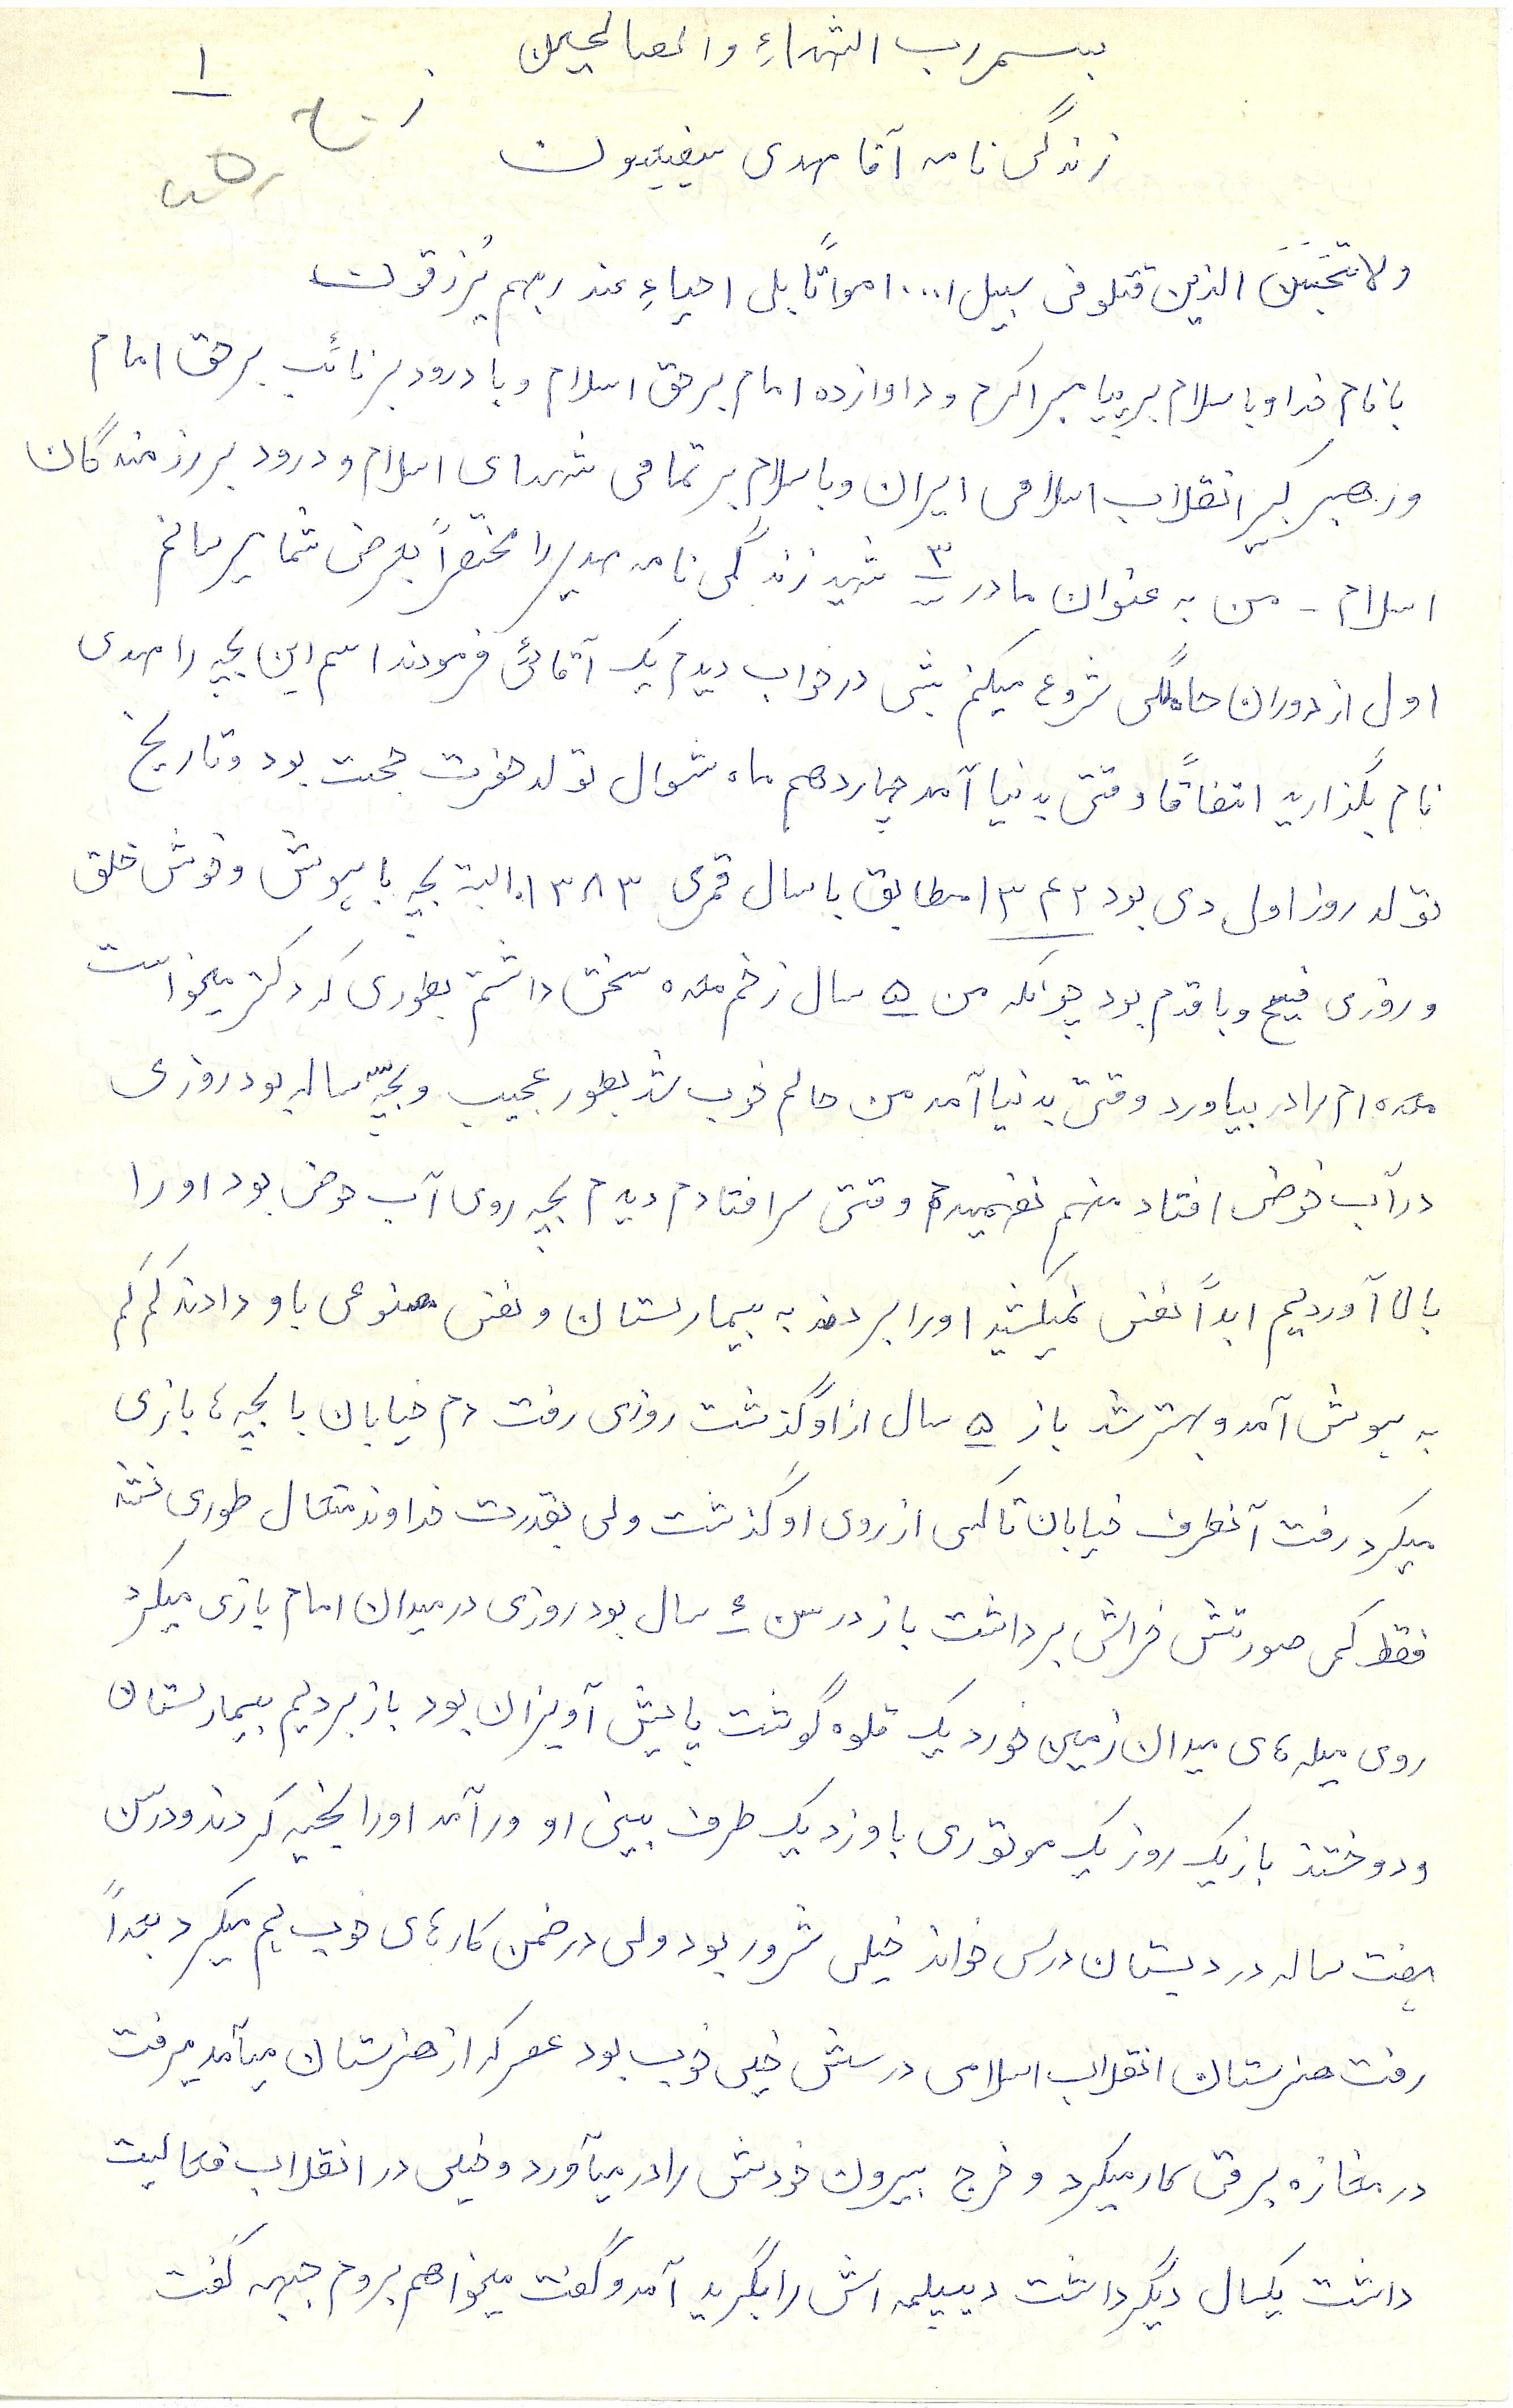 بسم رب الشهداءِ والصالحین
۱
زندگی نامه آقا مهدی یقینیون
ولا تحسَبَنَ الذین قتلو فی سبیل ا... امواتًا بلی احیاءِ عند ربهم یُرزقون
با نام خدا و با سلام بر پیامبر اکرم و داوازده امام برحق اسلام و با درود بر نائب برحق امام
و رهبر کبیر انقلاب اسلامی ایران و با سلام بر تمامی شهدای اسلام و درود بر رزمندگان
اسلام - من به عنوان مادر ۳ شهید زندگی نامه مهدی را مختصراً بعرض شما میرسانم
اول از دوران حاملگی شروع میکنم شبی در خواب دیدم یک آقائی فرمودند اسم این بچه را مهدی
نام بگذارید اتفاقًا وقتی بدنیا آمد چهاردهم ماه شوال تولد حضرت حجت بود و تاریخ
تولد روز اول دی بود ۱۳۴۲ مطابق با سال قمری ۱۳۸۳. البته بچه باهوش و خوش خلق
و روزی فیح و با قدم بود چونکه من ۵ سال زخم معده سختی داشتم بطوری که دکتر میخواست
معده ام را در بیاورد وقتی بدنیا آمد من حالم خوب شد بطور عجیب و بچّه ساله بود روزی
در آب حوض افتاد منهم نفهمیدم وقتی سر افتادم دیدم بچه روی آب حوض بود او را
بالا آوردیم ابداً نفس نمیکشید او را بردند به بیمارستان و نفس مصنوعی باو دادند کم کم
به هوش آمد و بهتر شد باز ۵ سال از او گذشت روزی رفت دم خیابان با بچه ها بازی
میکرد رفت آنطرف خیابان تاکسی از روی او گذشت ولی بقدرت خداوند متعال طوری نشد
فقط کمی صورتش خراش برداشت باز در سن ۶ سال بود روزی در میدان امام بازی میکرد
روی میله های میدان زمین خورد یک قلوه گوشت پایش آویزان بود باز بردیم بیمارستان
و دوختند باز یک روز یک موتوری باو زد یک طرف بینی او ور آمد او را بخیه کردند و در سن
هفت ساله در دبستان درس خواند خیلی شرور بود ولی در ضمن کارهای خوب هم میکرد بعداً
رفت هنرستان انقلاب اسلامی درسش خیلی خوب بود عصر که از هنرستان میآمد میرفت
در مغازه برقی کار میکرد و خرج بیرون خودش را در میآورد و خیلی در انقلاب فعالیت
داشت یکسال دیگر داشت دیپلمه اش را بگیرید آمد و گفت میخواهم بروم جبهه گفت